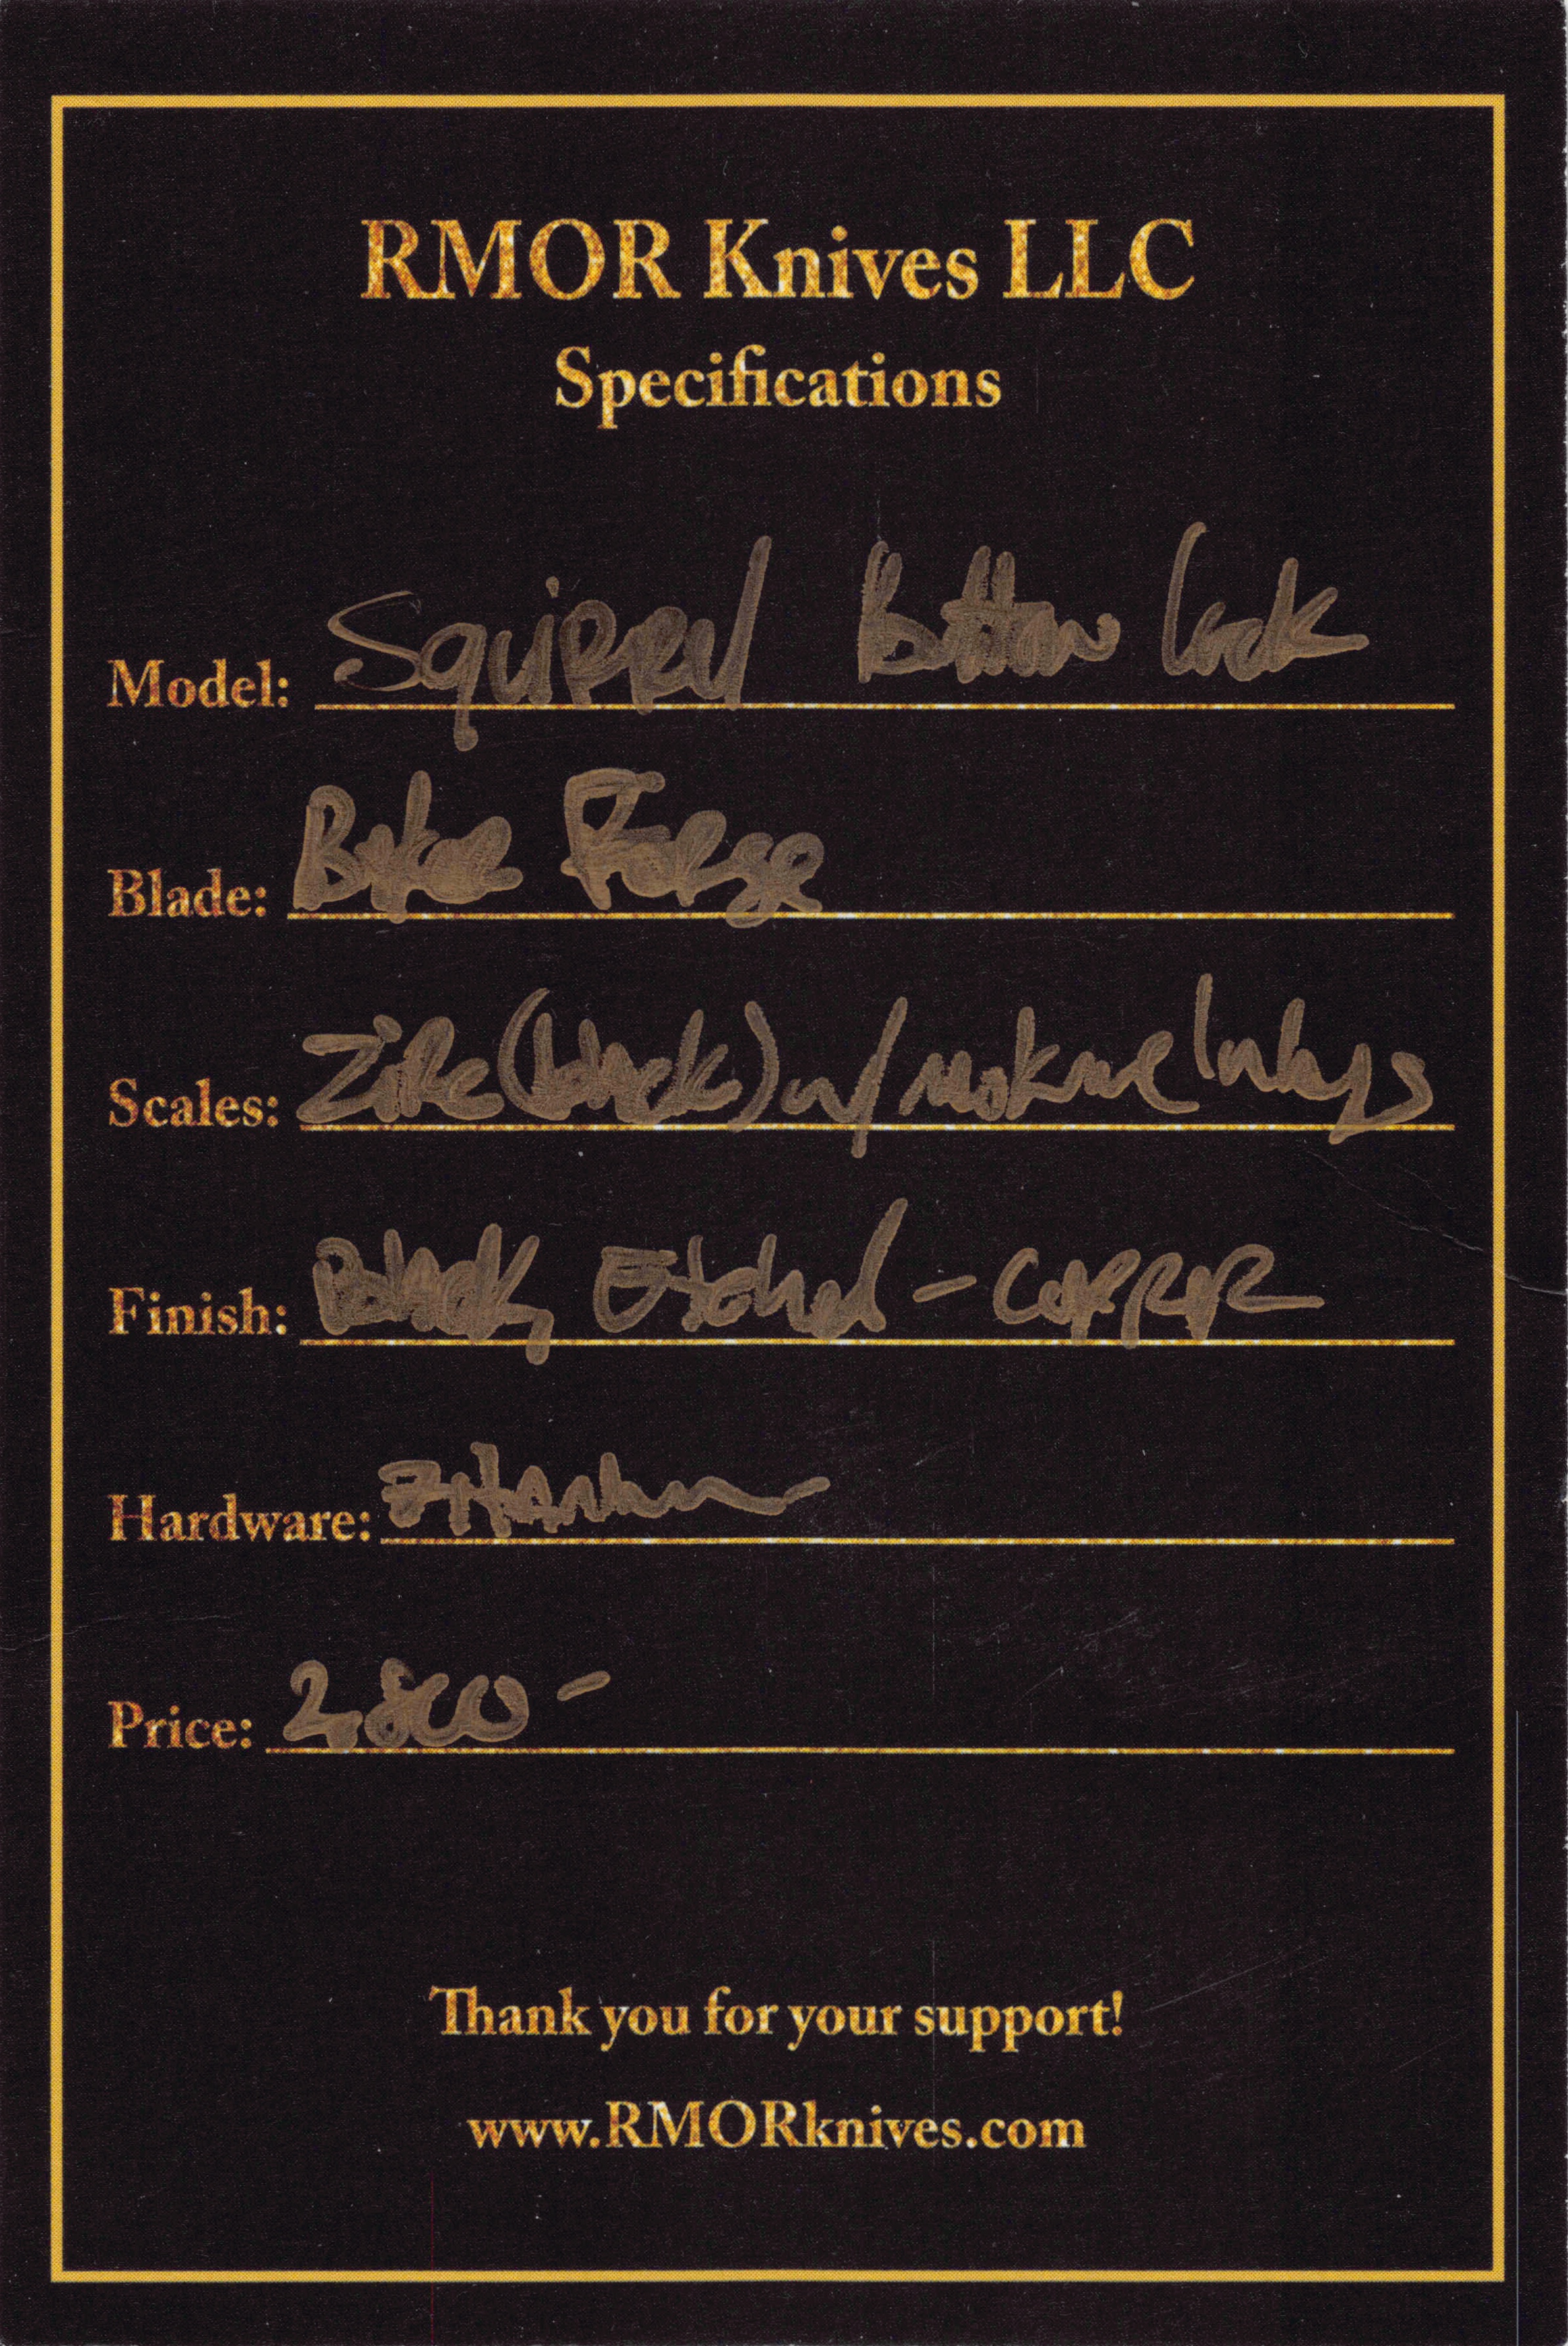 RMOR Knives LLC
Specifications
Model: Squirrel Button Lock
Blade: Baker Forge
Scales: Zirc (black) w/ mokume Inlays
Finish: Black, Etched - Copper
Hardware: Titanium
Price: 2,800 -
Thank you for your support!
www.RMORknives.com